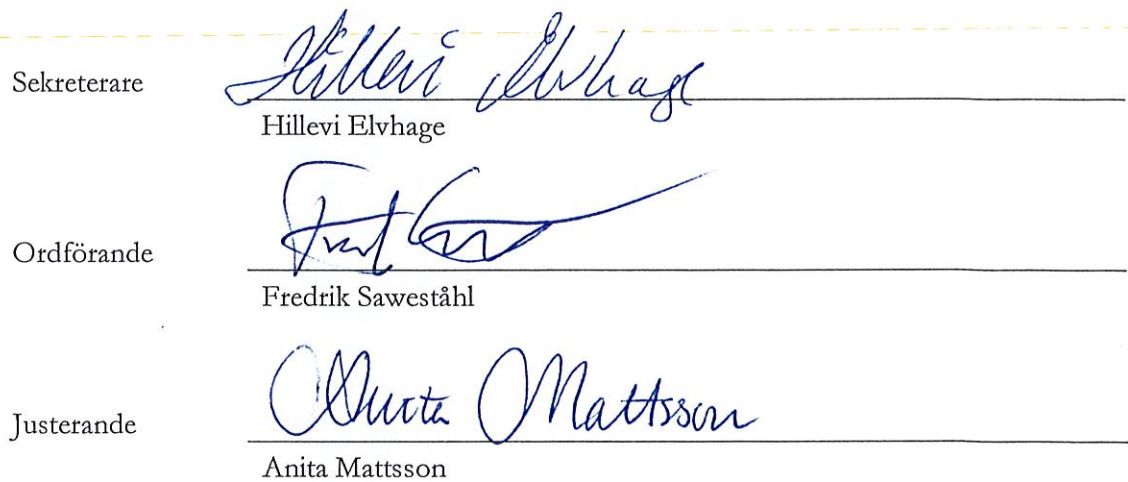 Sekreterare Hillevi Elvhage
Hillevi Elvhage
Ordförande
Fredrik Saweståhl
Justerande Anita Mattsson
Anita Mattsson